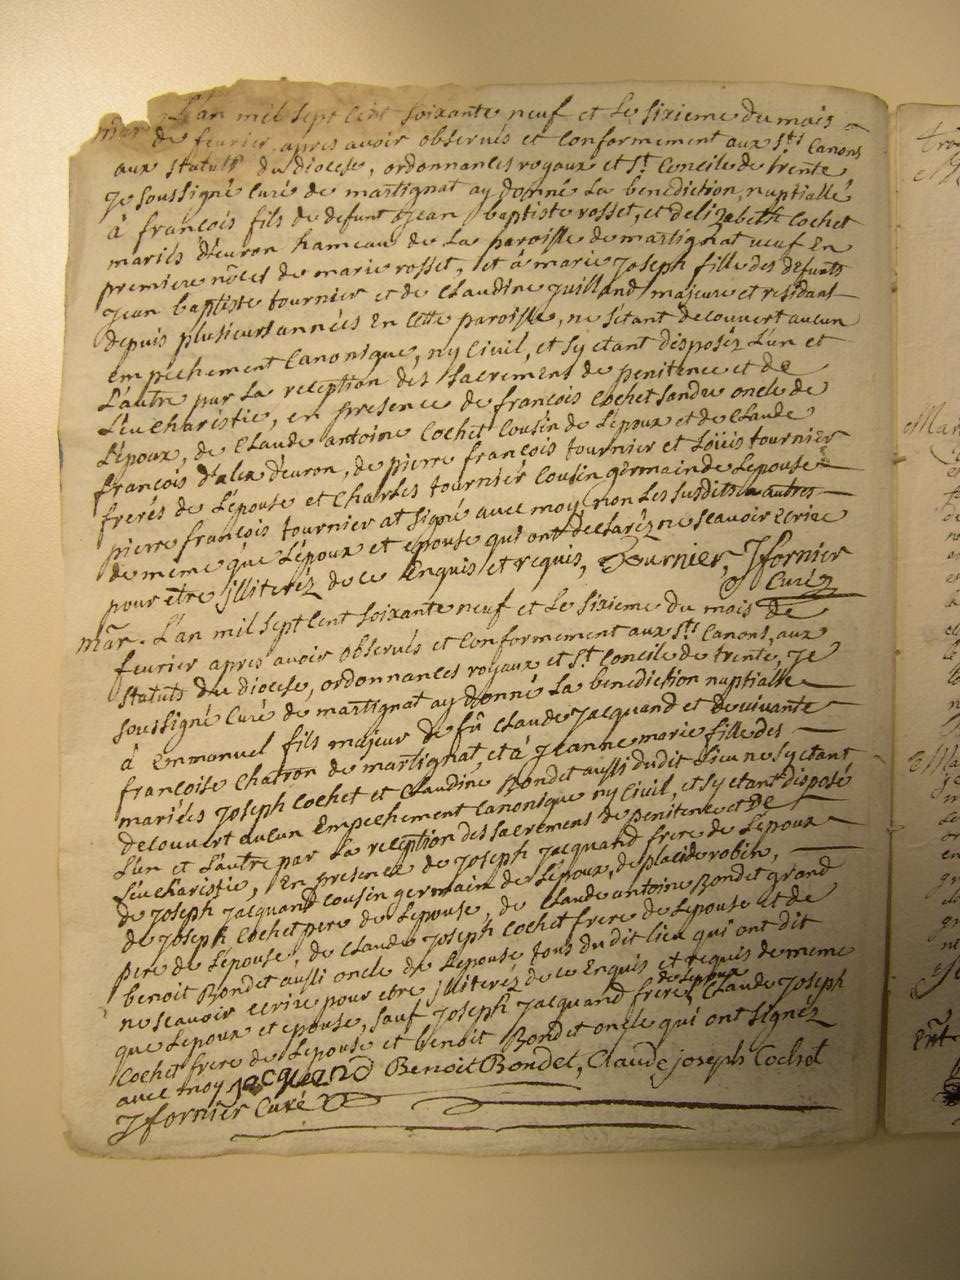 mar. L'an mil sept cent soixante neuf et le sixieme du mois
de fevrier, apres avoir observés et conformement aux Sts Canons
aux statuts du diocese, ordonnances royaux et St Concile de trente
Je soussigné Curé de martignat ay donné la benediction nuptiallé
à françois fils de defunt Jean baptiste rosset, et delizabeth Cochet
mariés d'évron hameau de la paroisse de martignat veuf En
premiere nôces de marie rosset, et à marie Joseph fille des defunts
Jean baptiste tournier et de Claudine juilland majeure et residant
depuis plusieurs années En Cette paroisse, ne s'étant decouvert aucun
empechement Canonique, ny Civil, et s'y etant disposéz L'un et
L'autre par La reception des sacremens de penitence et de
L'eucharistie, en presence de françois Cochet sandre oncle de
L'époux, de Claude antoine Cochet Cousin de L'époux et de Claude
françois d'alex d'évron, de pierre françois tournier et Loüis tournier
frerés de L'épouse et Charles tournier Cousin germain de L'epouse
pierre françois tournier at signé avec moy, non Les susdits autres
de même que L'époux et epouse qui ont declaréz ne sçavoir Ecrire
pour etre jlliteréz de ce Enquis et requis, Tournier, Jfornier
Curé
mãr. L'an mil sept Cent soixante neuf et Le sixieme du mois de
fevrier apres avoir observés et Conformement aux Sts Canons, aux
statuts du diocese, ordonnances royaux et St Concile de trente, Je
soussigné Curé de martignat ay donné La benediction nuptialle
à Emmanuel fils majeur de fû Claude Jacquand et de vivante
françoise Chatron de martignat, et à Jeanne marie fille des
mariés Joseph Cochet et Claudine Bondet aussi dudit Lieu ne s'y etant
decouvert aucun Empechement Canonique ny Civil, et s'y etant disposé
L'un et L'autre par La reception des sacremens de penitence et de
L'eucharistie, En presence de Joseph Jacquand frere de L'époux
de Joseph Jacquand cousin germain de L'époux, de placide robin,
de Joseph Cochet pere de L'epouse, de Claude antoine Bondet grand
pere de L'épouse, de Claude Joseph Cochet frere de L'epouse et de
benoit Bondet aussi oncle de L'epouse tous dudit lieu qui ont dit
ne sçavoir ecrire pour etre jlliteréz de ce Enquis et requis de meme
que L'epoux et epouse, sauf Joseph Jacquand frere de L'epoux Claude Joseph
Cochet frere de L'epouse et benoit Bondet oncle qui ont signéz
avec moy Jacquand Benoit Bondet, Claude joseph Cochet
Jfornier Curé